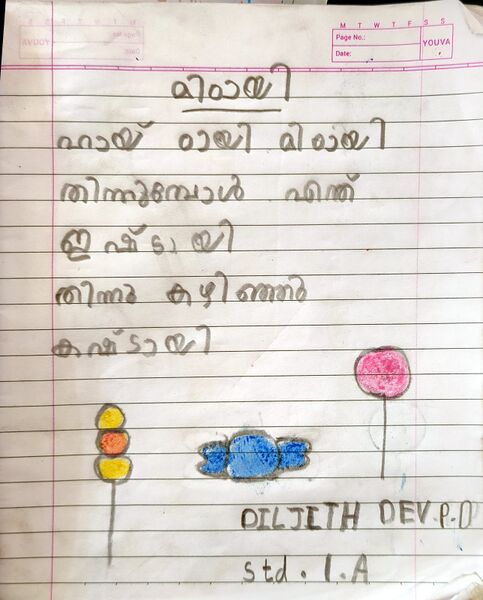 M T W T F S S
Page No.:
Date:
YOUVA
മിഠായി
ഹായ് ഠായി മിഠായി
തിന്നുമ്പോൾ എന്ത്
ഇഷ്ടായി
തിന്നു കഴിഞ്ഞാൽ
കഷ്ടായി
DILJITH DEV.P.D
std. 1.A